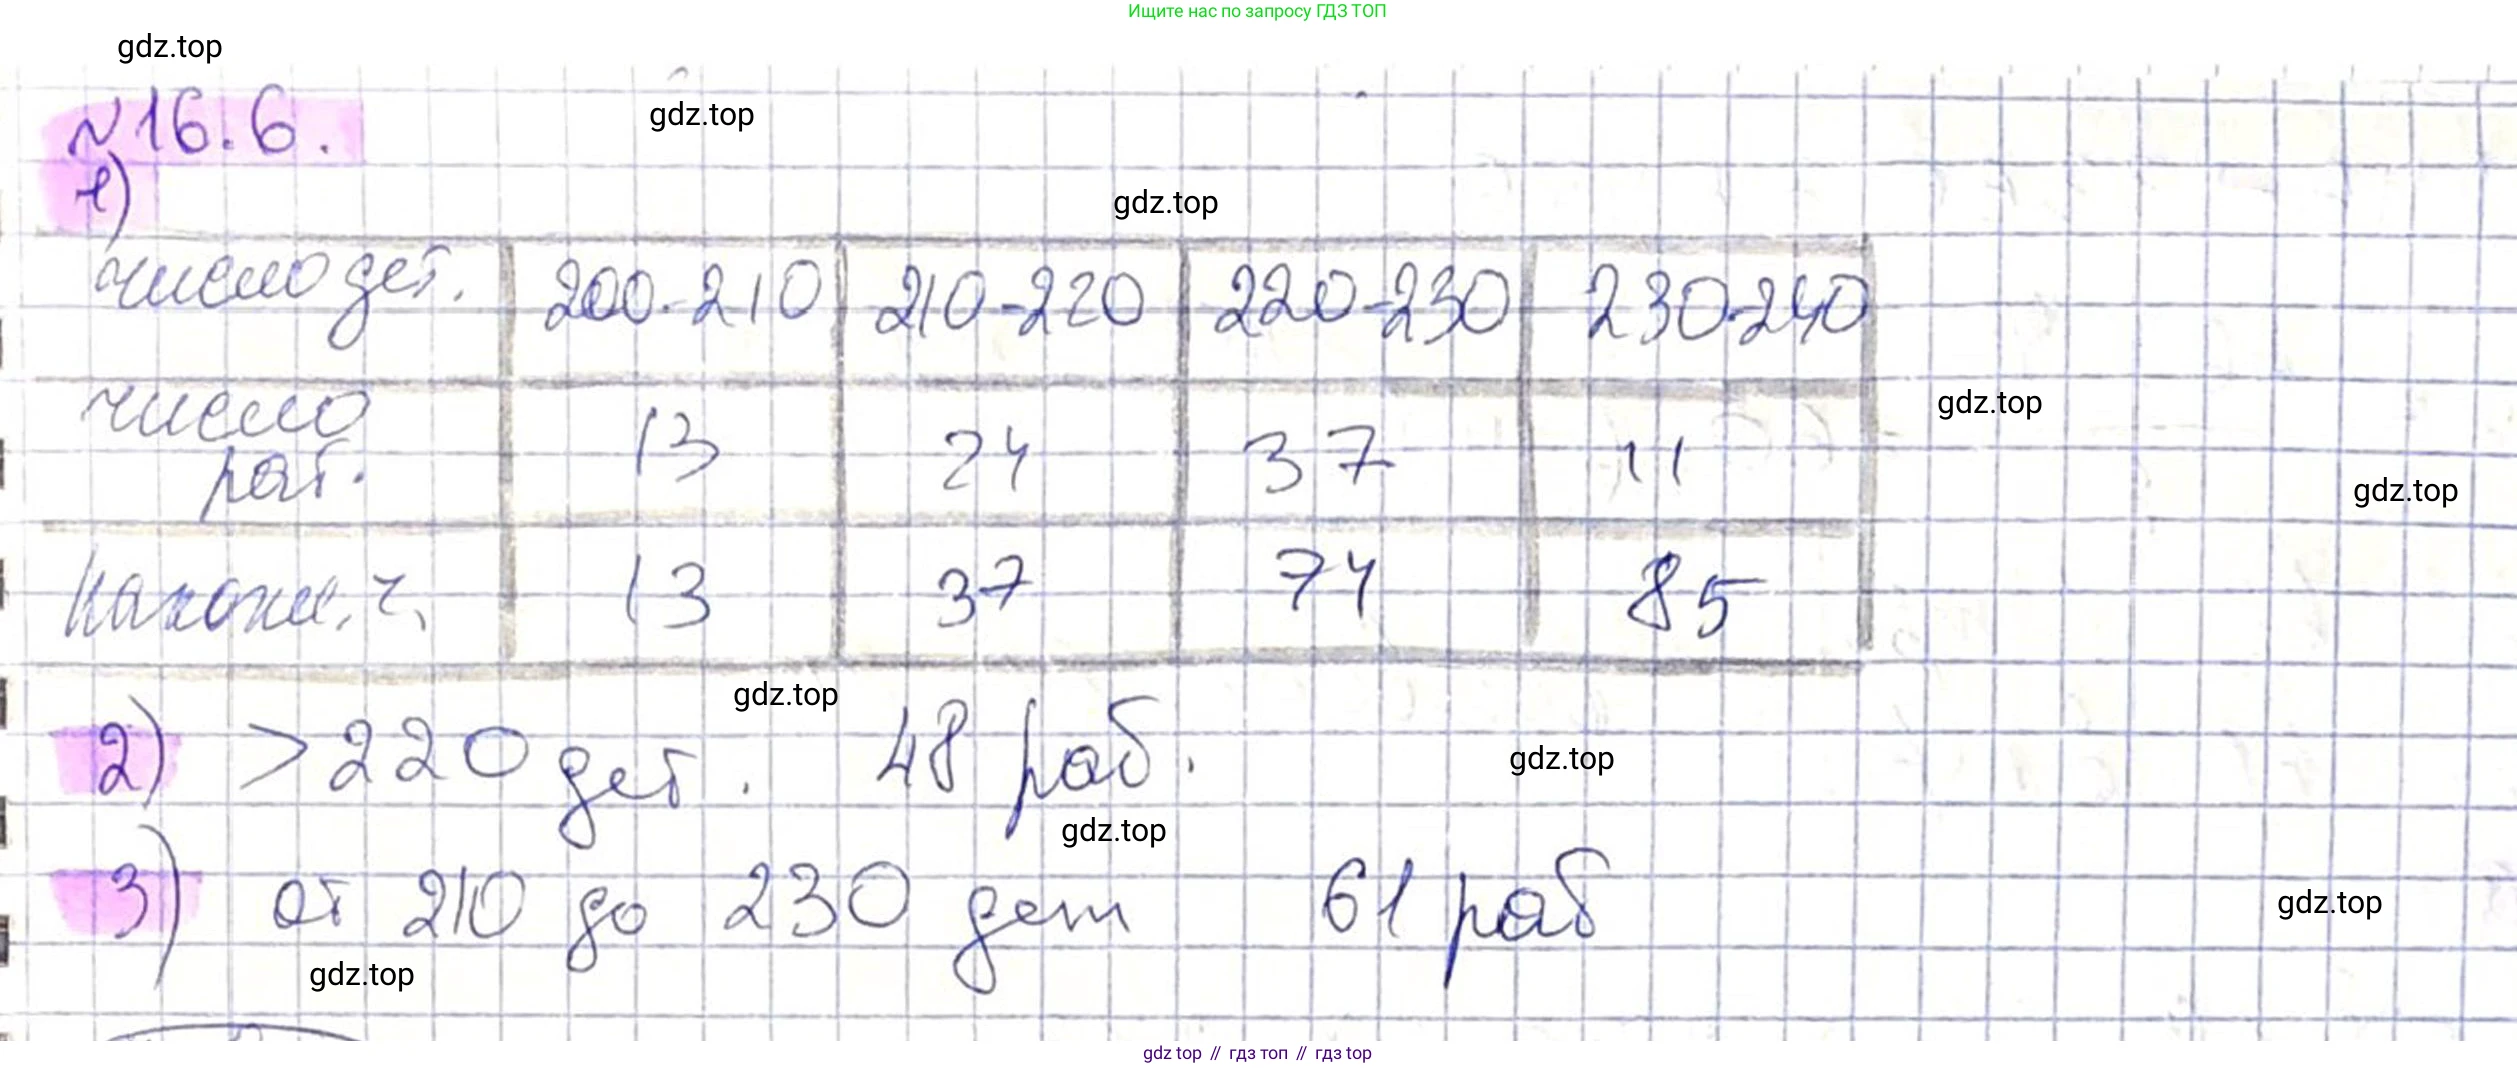 Ищите нас по запросу ГДЗ ТОП
gdz.top
№16.6.
gdz.top
1)
gdz.top
число дет. 200-210 210-220 220-230 230-240
gdz.top
число 13 24 37 11
раб.
gdz.top
накопл. ч. 13 37 74 85
gdz.top
2) >220 дет. 48 раб.
gdz.top
gdz.top
3) от 210 до 230 дет 61 раб
gdz.top
gdz.top
gdz top // гдз топ // гдз top